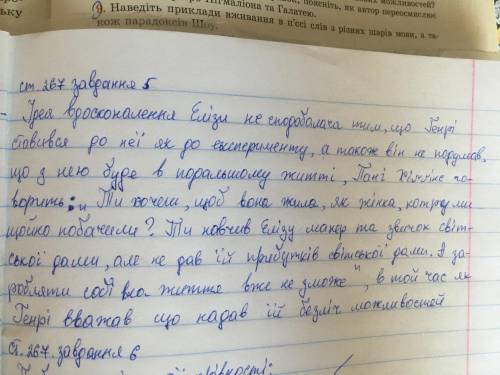 ьку
Пігмаліона та Галатею.
можливостей?
поясніть, як автор переосмислює
9. Наведіть приклади вживання в п'єсі слів з різних шарів мови, а та-
кож парадоксів Шоу.
ст. 267 завдання 5
Ідея вдосконалення Елізи не сподобалася тим, що Генрі
ставився до неї як до експерименту, а також він не подумав,
що з нею буде в подальшому житті, Пані Хіггінс го-
ворить: „Ти хочеш, щоб вона жила, як жінка, котру ми
щойно побачили? Ти навчив Елізу манер та звичок світ-
ської дами, але не дав їй прибутків світської дами. А за-
робляти собі на життя вже не зможе", в той час як
Генрі вважав що надав їй безліч можливостей
Ст. 267. завдання 6